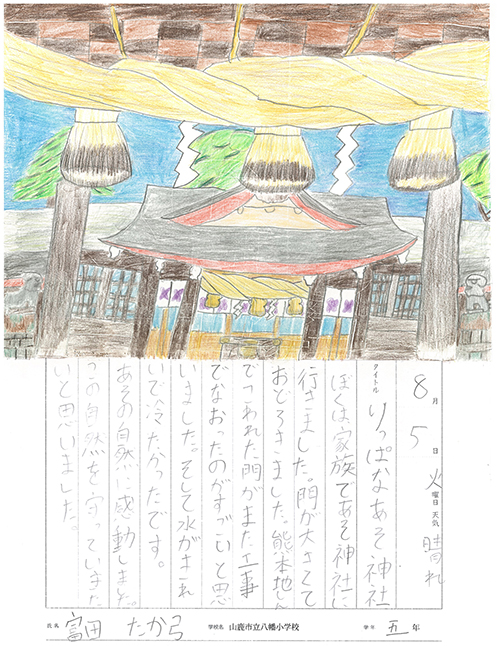 8月5日火曜日 天気 晴れ
タイトル りっぱなあそ神社
ぼくは家族であそ神社に
行きました。門が大きくて
おどろきました。熊本地しん
でこわれた門がまた工事
でなおったのがすごいと思
いました。そして水がきれ
いで冷たかったです。
あその自然に感動しました。
この自然を守っていきた
いと思いました。
氏名 富田 たか弓 学校名 山鹿市立八幡小学校 学年 五年